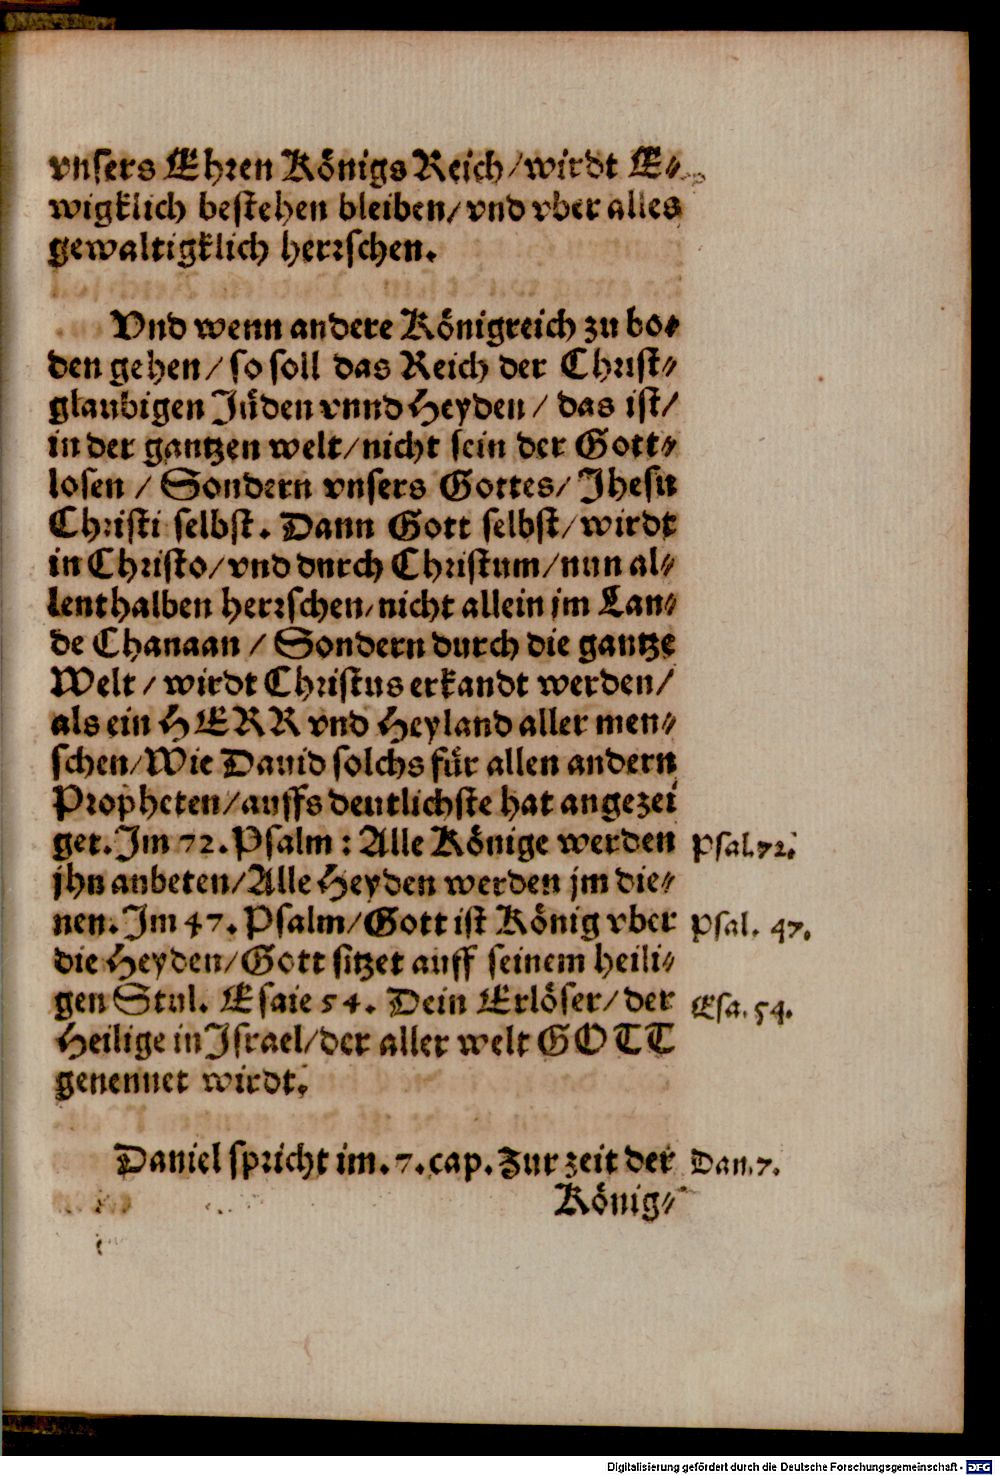 vnsers Ehren Königs Reich/wirdt E⸗
wigklich bestehen bleiben/vnd vber alles
gewaltigklich herrschen.
Vnd wenn andere Königreich zu bo⸗
den gehen/so soll das Reich der Christ⸗
glaubigen Jüden vnnd Heyden/das ist/
in der gantzen welt/nicht sein der Gott⸗
losen/Sondern vnsers Gottes/Jhesu
Christi selbst. Dann Gott selbst/wirdt
in Christo/vnd durch Christum/nun al⸗
lenthalben herrschen/nicht allein jm Lan⸗
de Chanaan/Sondern durch die gantze
Welt/wirdt Christus erkandt werden/
als ein HERR vnd Heyland aller men⸗
schen/Wie Dauid solchs für allen andern
Propheten/auffs deutlichste hat angezei
get. Im 72. Psalm: Alle Könige werden
Psal. 72.
jhn anbeten/Alle Heyden werden jm die⸗
nen. Im 47. Psalm/Gott ist König vber
Psal. 47.
die Heyden/Gott sitzet auff seinem heili⸗
gen Stul. Esaie 54. Dein Erlöser/der
Esa. 54.
Heilige in Israel/der aller welt GOTT
genennet wirdt.
Daniel spricht im. 7. cap. Zur zeit der
Dan. 7.
König⸗
Digitalisierung gefördert durch die Deutsche Forschungsgemeinschaft - DFG